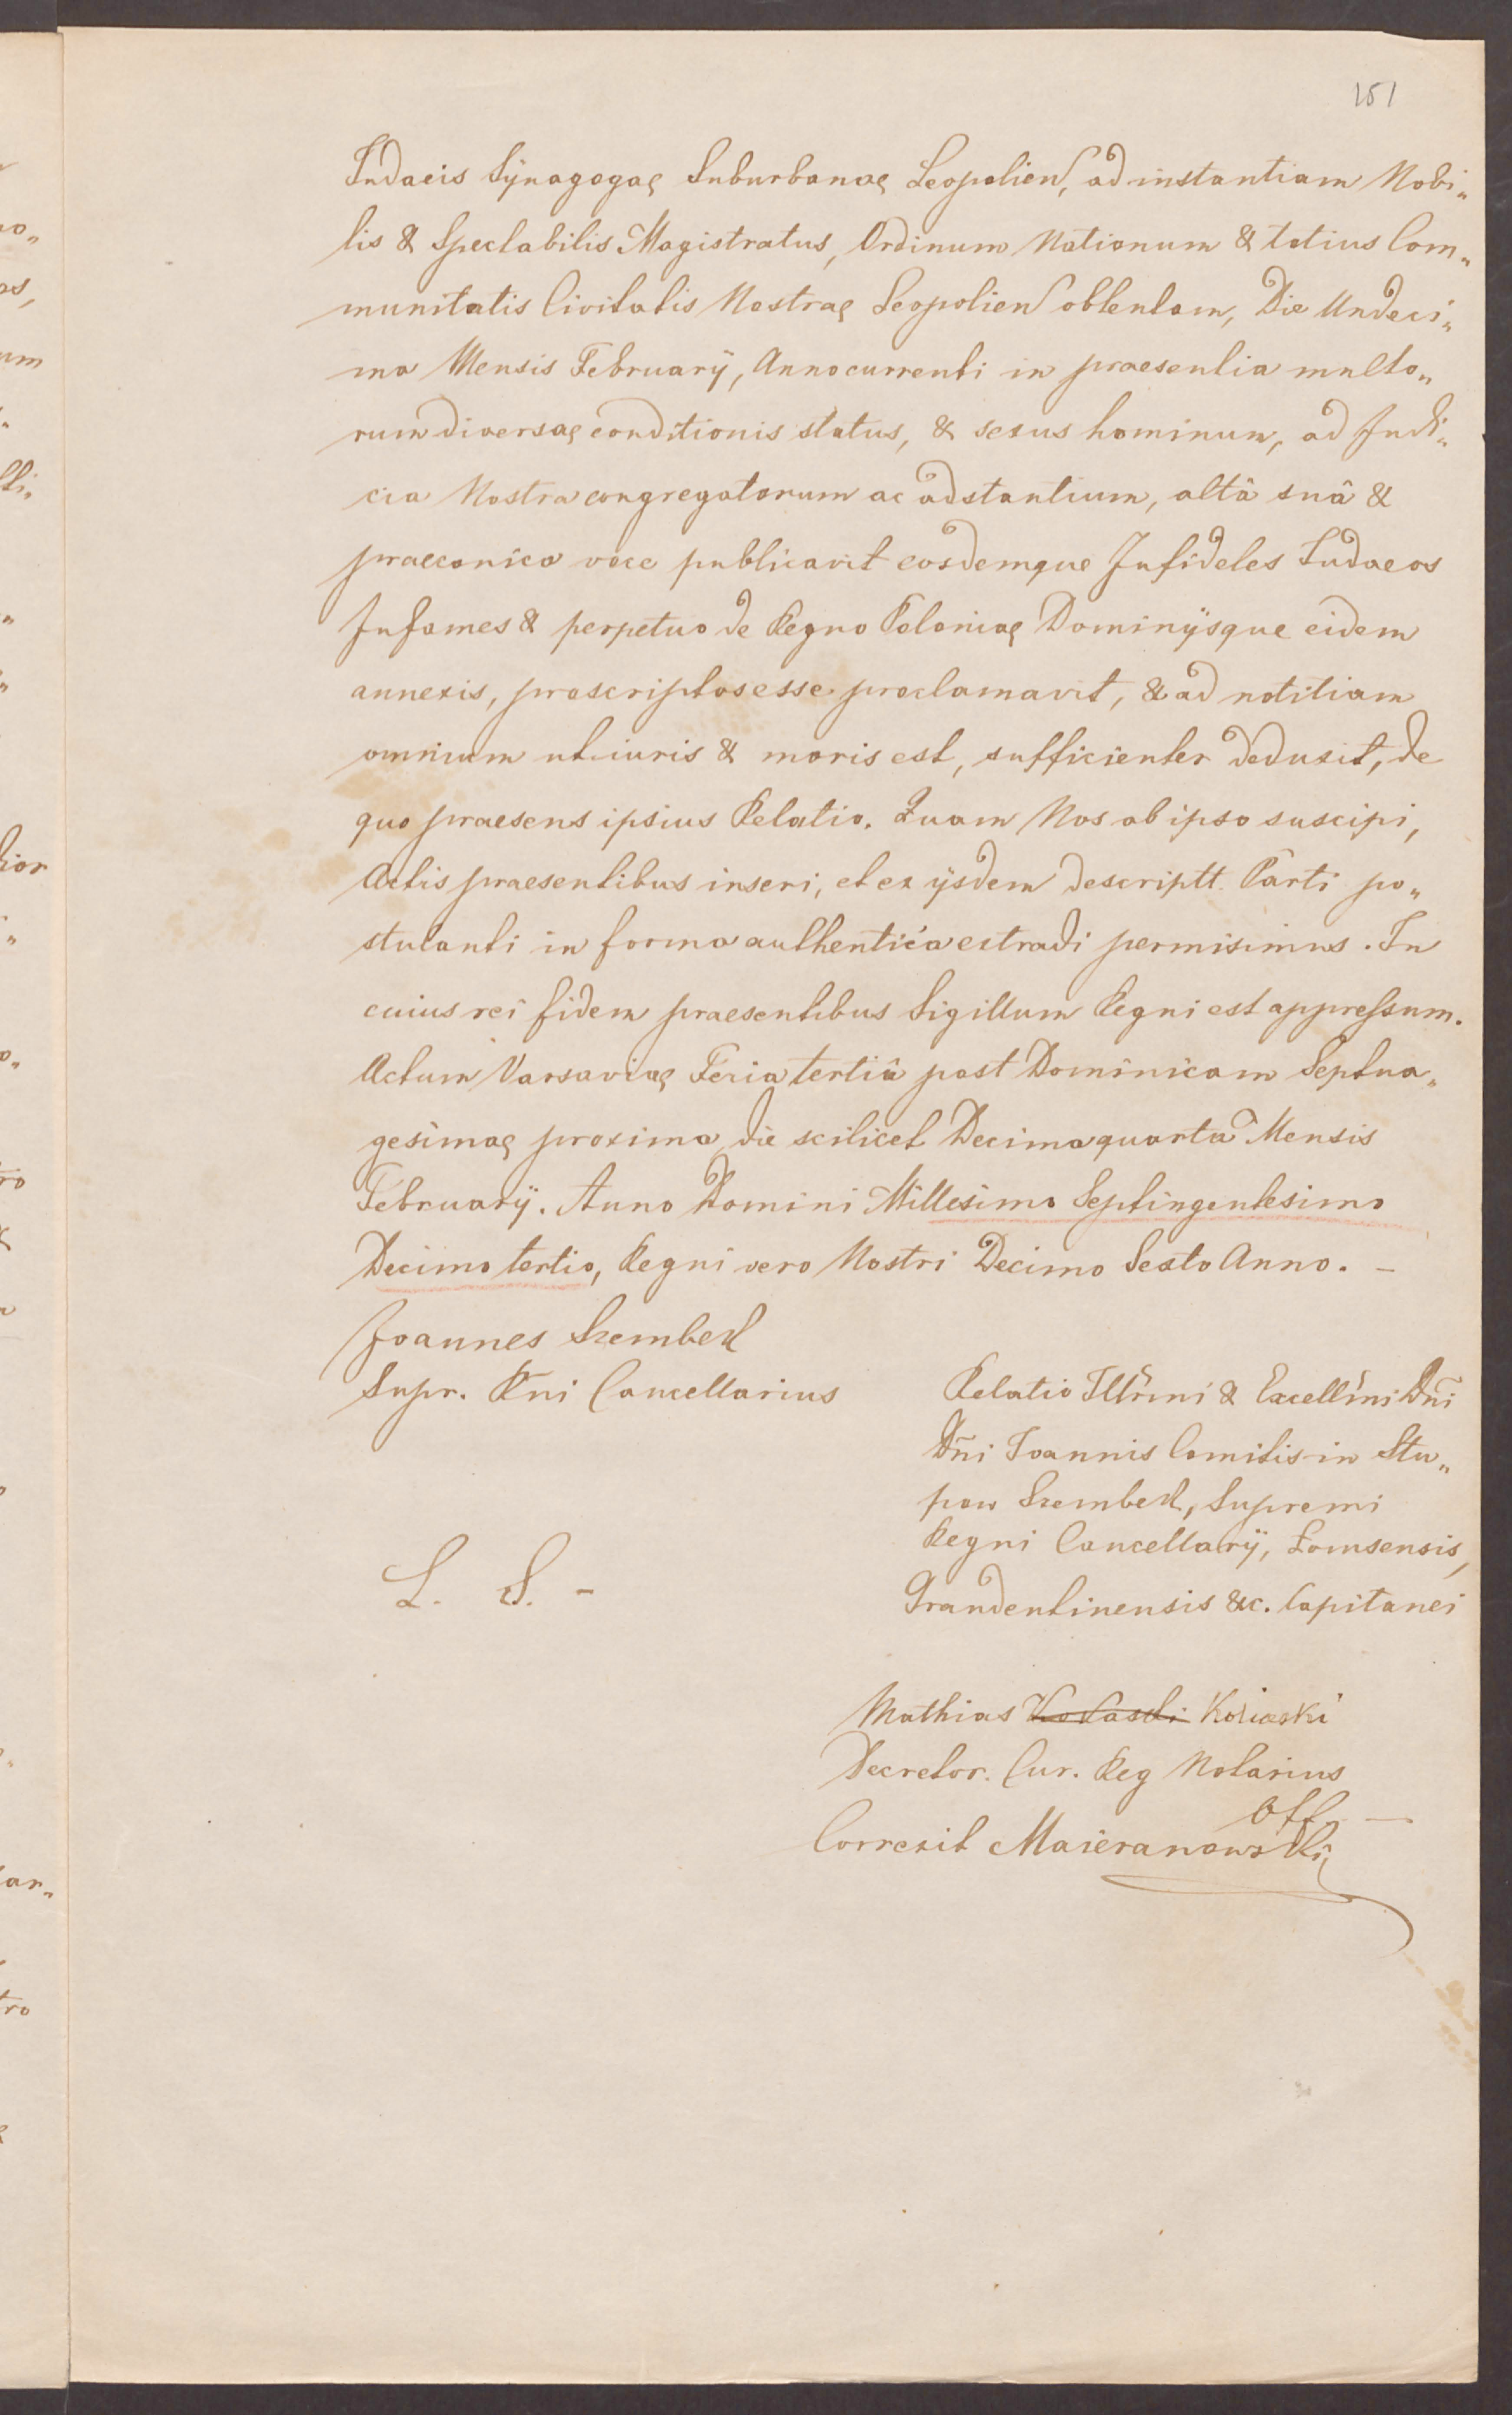 151
Judaeis Synagogae Suburbanae Leopolien, ad instantiam Nobi„
lis & Spectabilis Magistratus, Ordinum Nationum & totius Com„
munitatis Civitatis Nostrae Leopolien obtentam, Die Undeci„
ma Mensis Februarÿ, Anno currenti in praesentia multo„
rum diversae conditionis status, & sexus hominum, ad Judi„
cia Nostra congregatorum ac adstantium, altâ suâ &
praeconica voce publicavit eosdemque Infideles Judaeos
Infames & perpetuo de Regno Poloniae Dominÿsque eidem
annexis, proscriptos esse proclamavit, & ad notitiam
omnium uti iuris & moris est, sufficienter deduxit, de
quo praesens ipsius Relatio. Quam Nos ab ipso suscipi,
Actis praesentibus inseri, et ex ÿsdem descriptt. Parti po„
stulanti in forma authentica extradi permisimus. In
cuius rei fidem praesentibus Sigillum Regni est appressum.
Actum Varsaviae Feria tertiâ post Dominicam Septua„
gesimae proxima, die scilicet Decima quarta Mensis
Februarÿ. Anno Domini Millesimo Septingentesimo
Decimo tertio, Regni vero Nostri Decimo Sexto Anno. –
Joannes Szembek
Supr. Rni Cancellarius
Relatio Illrmi & Excellmi Dñi
Dñi Joannis Comitis in Słu„
pow Szembek, Supremi
Regni Cancellarÿ, Łomsensis,
Grandentinensis &c. Capitanei
L. S. –
Mathias
Decretor. Cur. Reg Notarius
Correxit Maieranowski